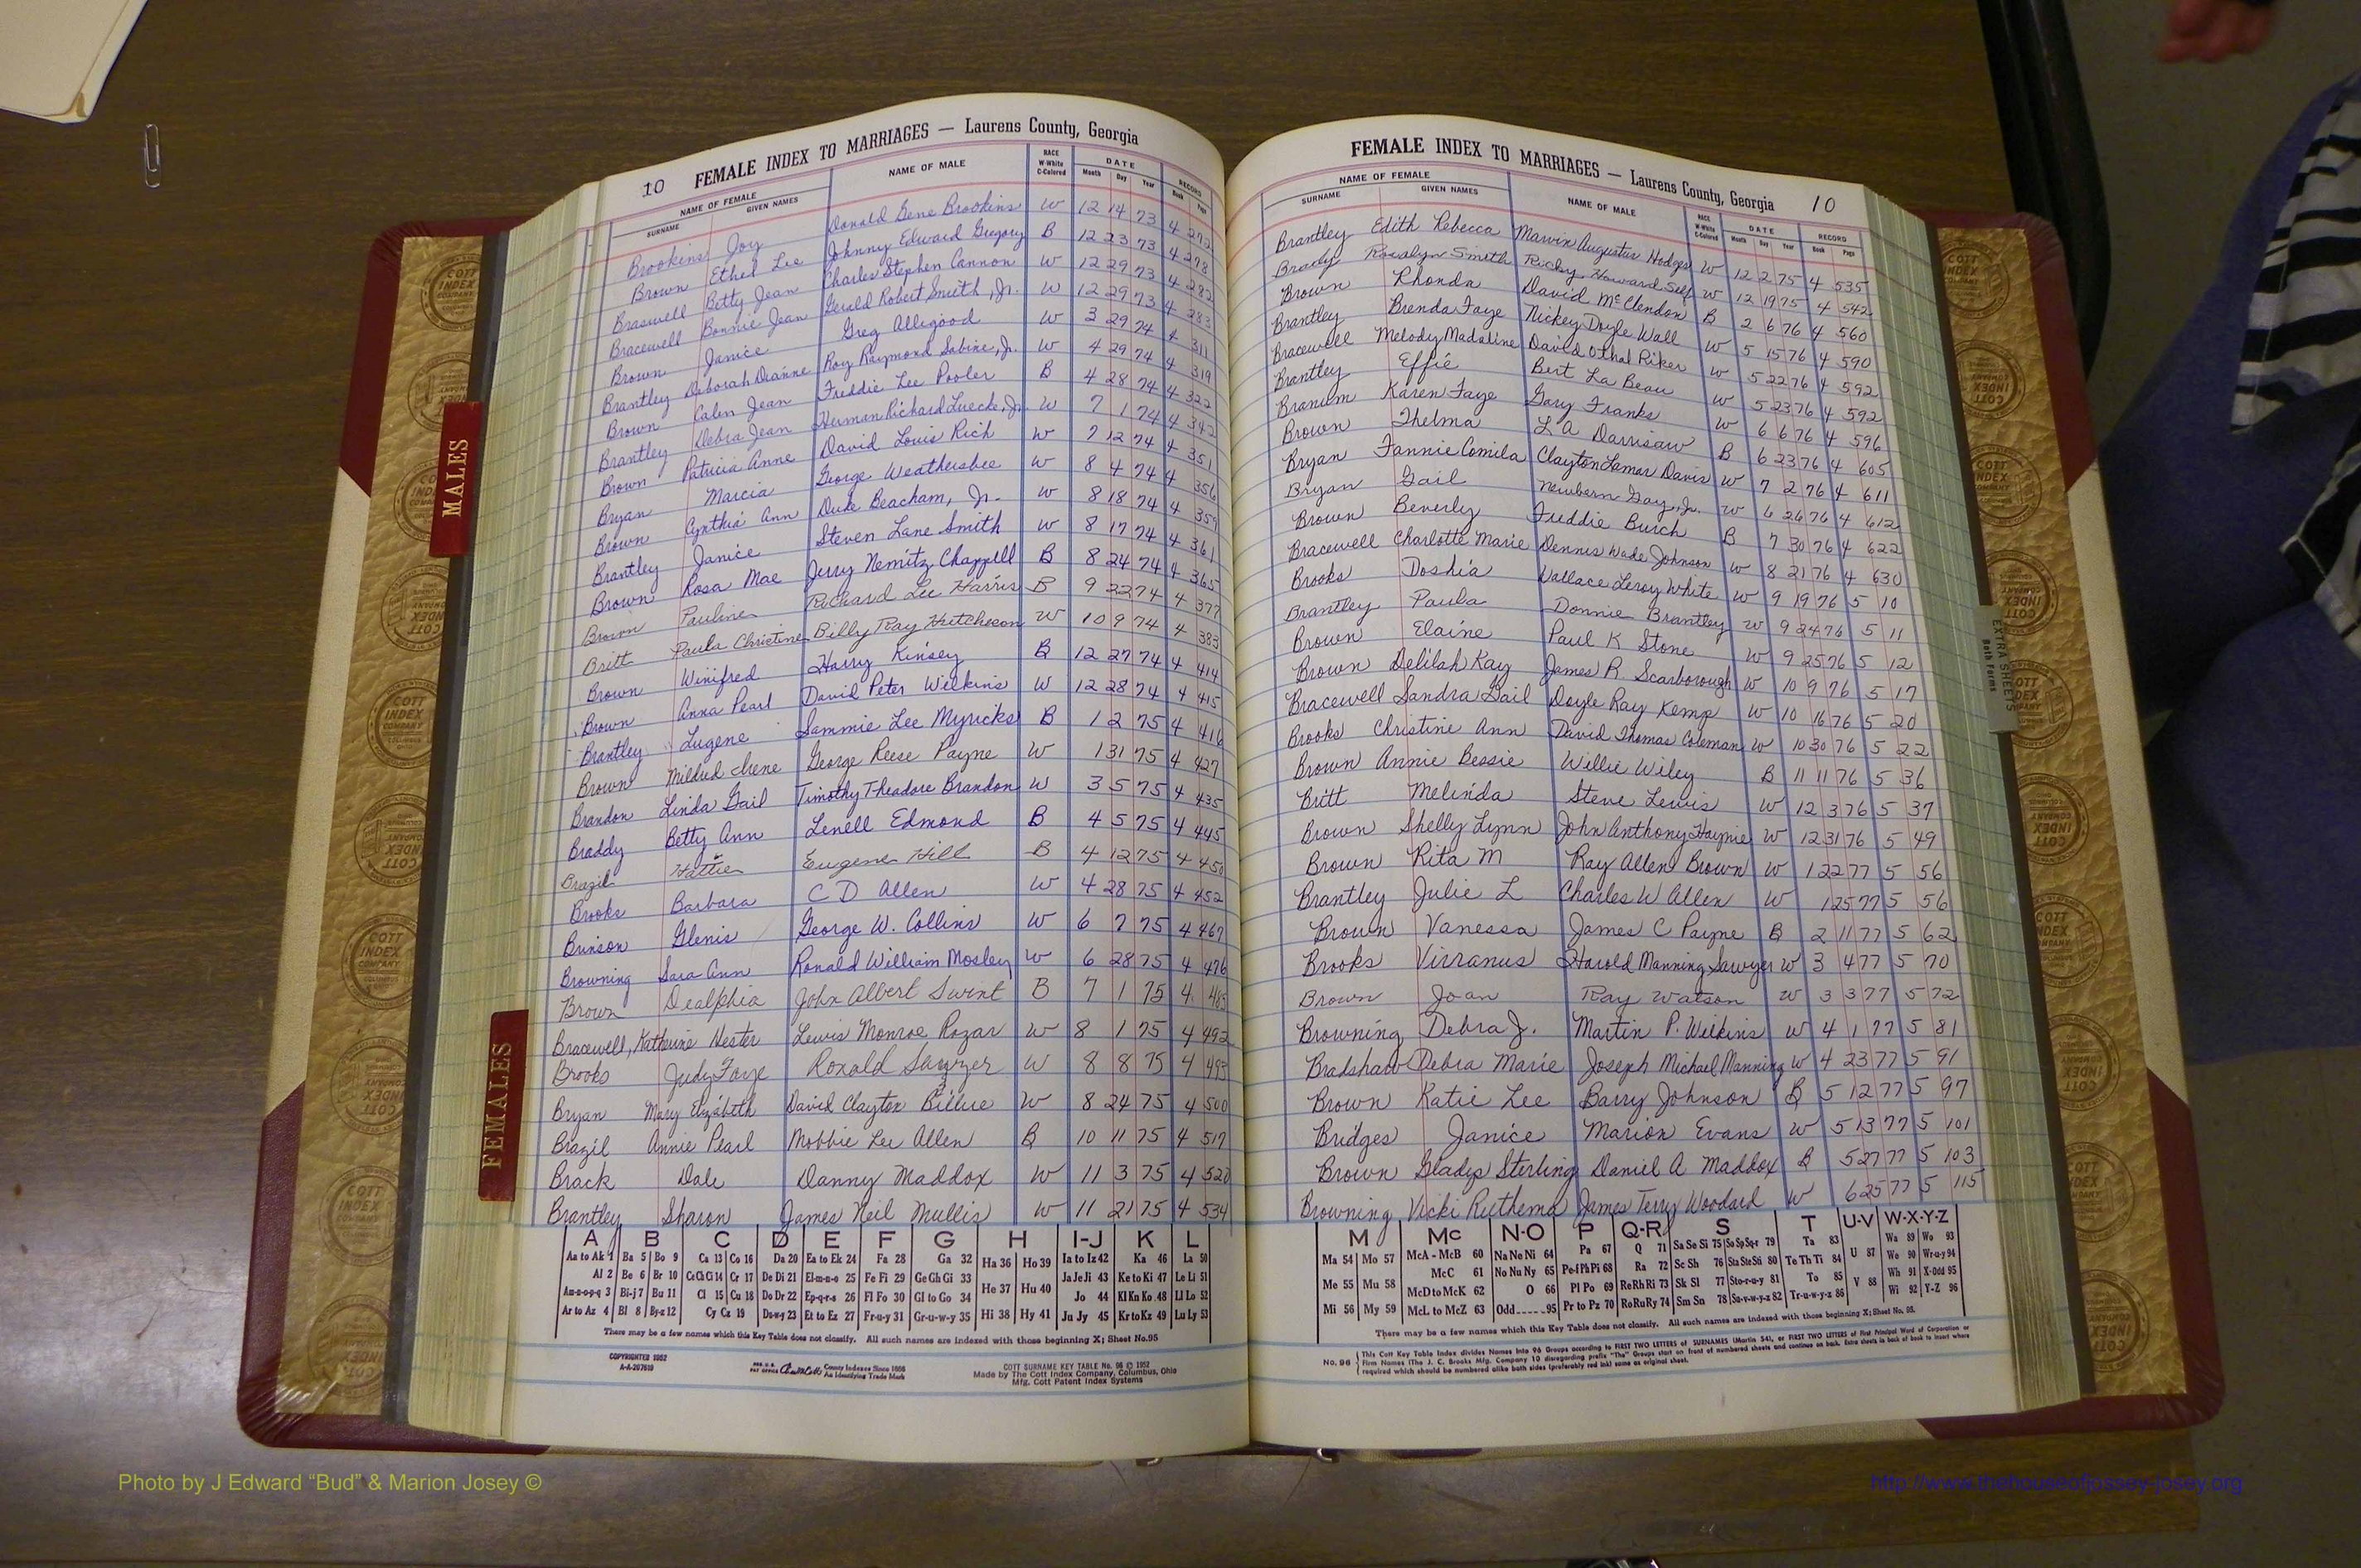 10 FEMALE INDEX TO MARRIAGES — Laurens County, Georgia
NAME OF FEMALE NAME OF MALE RACE W-White C-Colored DATE RECORD
SURNAME GIVEN NAMES Month Day Year Book Page
Brookins Joy Donald Gene Brookins W 12 14 73 4 272
Brown Ethel Lee Johnny Edward Gregory B 12 23 73 4 278
Braswell Betty Jean Charles Stephen Cannon W 12 29 73 4 282
Bracewell Bonnie Jean Gerald Robert Smith, Jr. W 12 29 73 4 283
Brown Janice Greg Alligood W 3 29 74 4 311
Brantley Deborah Dianne Roy Raymond Sabine, Jr. W 4 29 74 4 319
Brown Calen Jean Freddie Lee Pooler B 4 28 74 4 322
Brantley Debra Jean Herman Richard Luecke, Jr. W 7 1 74 4 342
Brown Patricia Anne David Louis Rich W 7 12 74 4 351
Bryan Marcia George Weathersbee W 8 4 74 4 356
Brown Cynthia Ann Duke Beacham, Jr. W 8 18 74 4 359
Brantley Janice Steven Lane Smith W 8 17 74 4 361
Brown Rosa Mae Jerry Nemitz Chappell B 8 24 74 4 365
Brown Pauline Richard Lee Harris B 9 22 74 4 377
Britt Paula Christine Billy Ray Hutcheson W 10 9 74 4 383
Brown Winifred Harry Kinsey B 12 27 74 4 414
Brown Anna Pearl David Peter Wilkins W 12 28 74 4 415
Brantley Lugene Sammie Lee Myricks B 1 2 75 4 416
Brown Mildred Irene George Reese Payne W 1 31 75 4 427
Brandon Linda Gail Timothy Theadore Brandon W 3 5 75 4 435
Braddy Betty Ann Lenell Edmond B 4 5 75 4 445
Brazil Hattie Eugene Hill B 4 12 75 4 450
Brooks Barbara C D Allen W 4 28 75 4 452
Brinson Glenis George W. Collins W 6 7 75 4 467
Browning Sara Ann Ronald William Mosley W 6 28 75 4 476
Brown Dealphia John Albert Swint B 7 1 75 4
Bracewell, Katherine Hester Lewis Monroe Rozar W 8 1 75 4 492
Brooks Judy Faye Ronald Sawyer W 8 8 75 4 495
Bryan Mary Elizabeth David Clayton Billue W 8 24 75 4 500
Brazil Annie Pearl Mobbie Lee Allen B 10 11 75 4 517
Brack Dale Danny Maddox W 11 3 75 4 520
Brantley Sharon James Neil Mullis W 11 21 75 4 534
A B C D E F G H I-J K L
Aa to Ak 1 Ba 5 Bo 9 Ca 13 Co 16 Da 20 Ea to Ek 24 Fa 28 Ga 32 Ha 36 Ho 39 Ia to Iz 42 Ka 46 La 50
Al 2 Be 6 Br 10 Ce Ch Ci 14 Cr 17 De Di 21 El-m-n-o 25 Fe Fi 29 Ge Gh Gi 33 Ja Je Ji 43 Ke to Ki 47 Le Li 51
Am-n-o-p-q 3 Bi-j 7 Bu 11 Cl 15 Cu 18 Do Dr 22 Ep-q-r-s 26 Fl Fo 30 Gl to Go 34 He 37 Hu 40 Jo 44 Kl Kn Ko 48 Ll Lo 52
Ar to Az 4 Bl 8 By-z 12 Cy Cz 19 Du-w-y 23 Et to Ez 27 Fr-u-y 31 Gr-u-w-y 35 Hi 38 Hy 41 Ju Jy 45 Kr to Kz 49 Lu Ly 53
There may be a few names which this Key Table does not classify. All such names are indexed with those beginning X; Sheet No. 95
COPYRIGHTED 1952
A-A-207610
County Indexes Since 1888
An Identifying Trade Mark
COTT SURNAME KEY TABLE No. 96 © 1952
Made by The Cott Index Company, Columbus, Ohio
Mfg. Cott Patent Index Systems
FEMALE INDEX TO MARRIAGES — Laurens County, Georgia 10
NAME OF FEMALE NAME OF MALE RACE W-White C-Colored DATE RECORD
SURNAME GIVEN NAMES Month Day Year Book Page
Brantley Edith Rebecca Marvin Augustus Hodges W 12 2 75 4 535
Brady Rosalyn Smith Ricky Howard Self W 12 19 75 4 542
Brown Rhonda David McClendon B 2 6 76 4 560
Brantley Brenda Faye Nickey Doyle Wall W 5 15 76 4 590
Bracewell Melody Madaline David Othal Riker W 5 22 76 4 592
Brantley Effie Bert La Beau W 5 23 76 4 592
Branum Karen Faye Gary Franks W 6 6 76 4 596
Brown Thelma L A Darrisaw B 6 23 76 4 605
Bryan Fannie Comila Clayton Lamar Davis W 7 2 76 4 611
Bryan Gail Newbern Gay, Jr. W 6 26 76 4 612
Brown Beverly Freddie Burch B 7 30 76 4 622
Bracewell Charlotte Marie Dennis Wade Johnson W 8 21 76 4 630
Brooks Doshia Wallace Leroy White W 9 19 76 5 10
Brantley Paula Donnie Brantley W 9 24 76 5 11
Brown Elaine Paul K Stone W 9 25 76 5 12
Brown Delilah Kay James R. Scarborough W 10 9 76 5 17
Bracewell Sandra Gail Doyle Ray Kemp W 10 16 76 5 20
Brooks Christine Ann David Thomas Coleman W 10 30 76 5 22
Brown Annie Bessie Willie Wiley B 11 11 76 5 36
Britt Melinda Steve Lewis W 12 3 76 5 37
Brown Shelly Lynn John Anthony Haynie W 12 31 76 5 49
Brown Rita M Ray Allen Brown W 1 22 77 5 56
Brantley Julie L Charles W Allen W 1 25 77 5 56
Brown Vanessa James C Payne B 2 11 77 5 62
Brooks Virranus Harold Manning Sawyer W 3 4 77 5 70
Brown Joan Ray Watson W 3 3 77 5 72
Browning Debra J. Martin P. Wilkins W 4 1 77 5 81
Bradshaw Debra Marie Joseph Michael Manning W 4 23 77 5 91
Brown Katie Lee Barry Johnson B 5 12 77 5 97
Bridges Janice Marion Evans W 5 13 77 5 101
Brown Gladys Sterling Daniel A Maddox B 5 27 77 5 103
Browning Vicki Ruthema James Terry Woodard W 6 25 77 5 115
M Mc N-O P Q-R S T U-V W-X-Y-Z
Ma 54 Mo 57 McA - McB 60 Na Ne Ni 64 Pa 67 Q 71 Sa Se Si 75 So Sp Sq-r 79 Ta 83 U 87 Wa 89 Wo 93
McC 61 No Nu Ny 65 Pe-f Ph Pi 68 Ra 72 Sc Sh 76 Sta Ste Sti 80 Te Th Ti 84 We 90 Wr-u-y 94
Me 55 Mu 58 McD to McK 62 O 66 Pl Po 69 Re Rh Ri 73 Sk Sl 77 Sto-r-u-y 81 To 85 V 88 Wh 91 X-Odd 95
Mi 56 My 59 McL to McZ 63 Odd 95 Pr to Pz 70 Ro Ru Ry 74 Sm Sn 78 Su-v-w-y-z 82 Tr-u-w-y-z 86 Wi 92 Y-Z 96
There may be a few names which this Key Table does not classify. All such names are indexed with those beginning X; Sheet No. 95.
No. 96 This Cott Key Table Index divides Names into 96 Groups according to FIRST TWO LETTERS of SURNAMES (Martin 54), or FIRST TWO LETTERS of First Principal Word of Corporation or
Firm Names (The J. C. Brooks Mfg. Company 10 disregarding prefix "The" Groups start on front of numbered sheets and continue on back. Extra sheets in back of book to insert where
required which should be numbered alike both sides (preferably red ink) same as original sheet.
MALES
FEMALES
EXTRA SHEETS
Both Forms
COTT INDEX COMPANY
Photo by J Edward “Bud” & Marion Josey ©
http://www.thehouseofjossey-josey.org